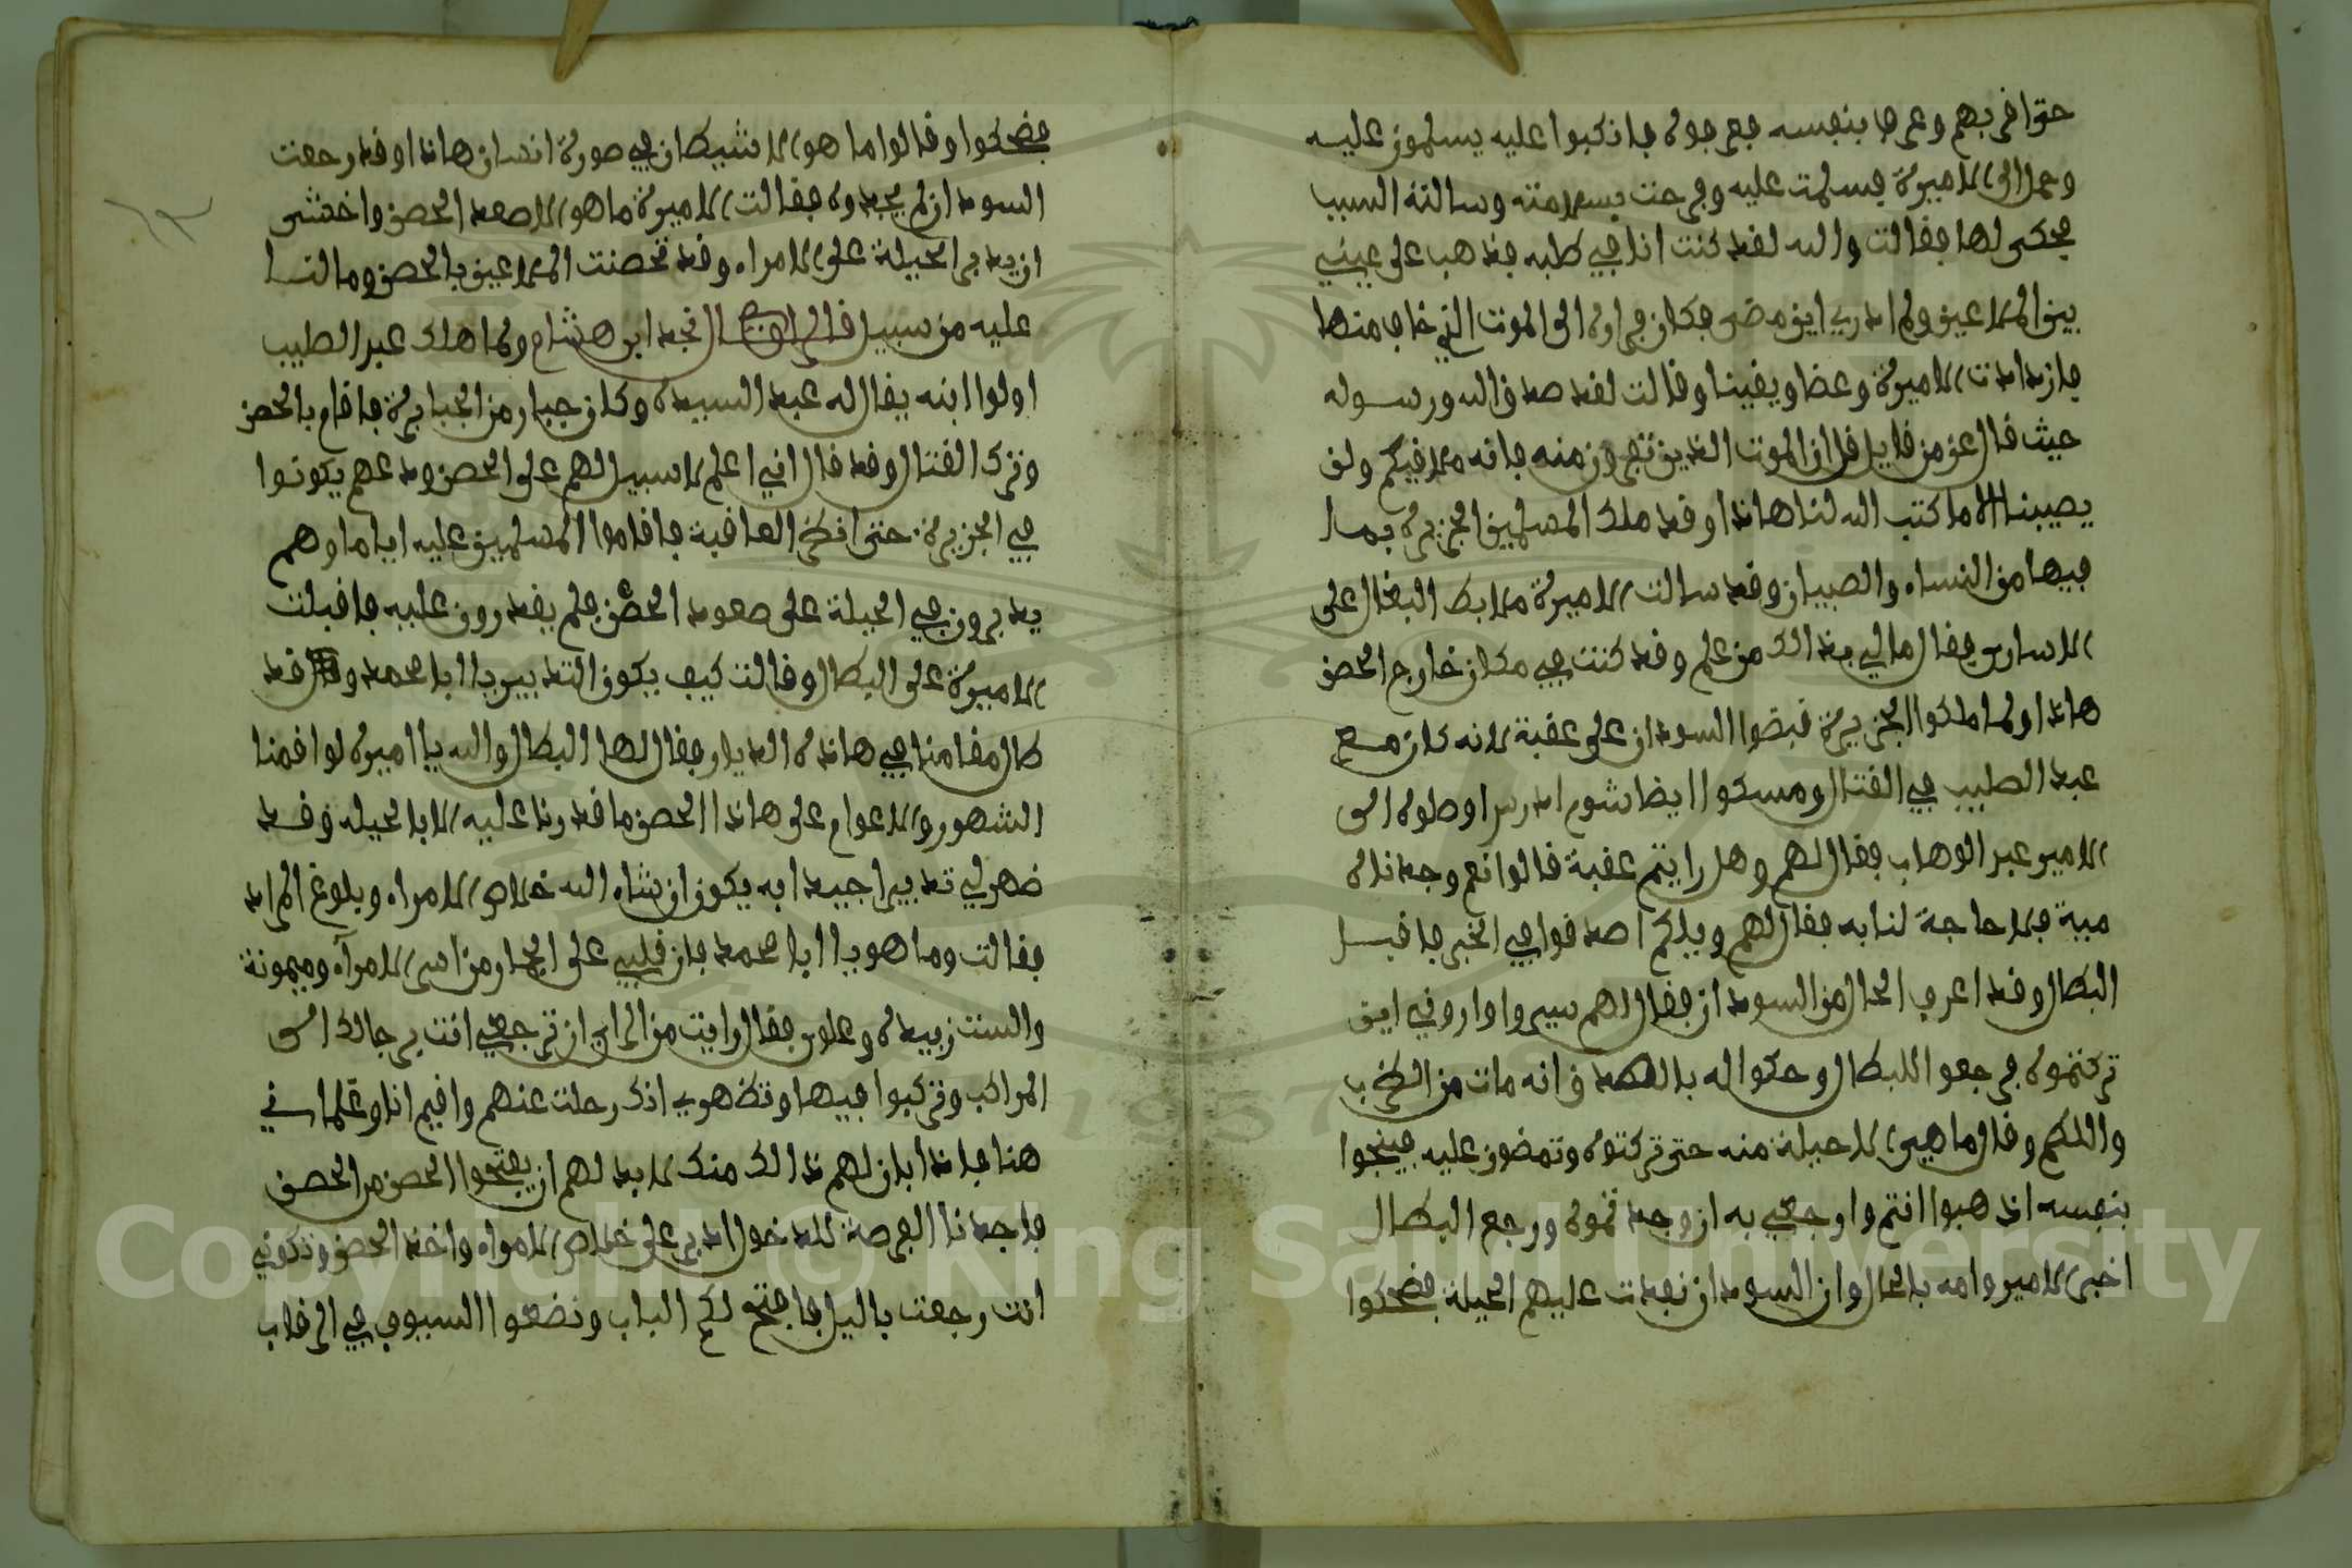 حتى اقربهم وعرفهم بنفسه فعرفوه فانكبوا عليه يسلمون عليه
وحمل الى الاميرة فسلمت عليه وفرحت بسلامته وسالته السبب
فحكى لها فقالت والله لقد كنت انا في طلبه فذهب على عيني
بين الملاعين ولم ادري اين مضى فكان فراره الى الموت الذي خاف منها
فازدادت الاميرة وعضا ويقينا وقالت لقد صدق الله ورسوله
حيث قال عز من قايل قل ان الموت الذين تفرون منه فانه ملاقيكم ولن
يصيبنا الا ما كتب الله لنا هاذا وقد ملك المسلمين الجزيرة بما
فيها من النساء والصبيان وقد سالت الاميرة ملابط البغال على
الاسارى فقال مالي بذالك من علم وقد كنت في مكان خارج الحصن
هاذا ولما ملكوا الجزيرة قبضوا السودان على عقبة لانه كان مع
عبد الطليب في القتال ومسكوا ايضا شومدرس اوطوه الى
الامير عبد الوهاب فقال لهم وهل رايتم عقبة قالوا نعم وجدناه
ميت فلا حاجة لنا به فقال لهم ويلكم اصدقوا في الخبر فاقبل
البطال وقد اعرف الحال من السودان فقال لهم سيروا اروني اين
تركتموه فرجعوا للبطال وحكوا له بالقصة وانه مات من الضرب
واللكم وقال ما هي الا حيلة منه حتى تركتوه وتمضون عليه فينجوا
بنفسه اذهبوا انتم وارجعي به ان وجدتموه ورجع البطال
اخبر الامير وامه بالحال وان السودان نفدت عليهم الحيلة فضحكوا
فضحكوا وقالوا ما هو الا شيطان في صورة انسان هاذا وقد رجعت
السودان لم يجدوه فقالت الاميرة ما هو الا صعد الحصن واخشى
ان يدبر الحيلة على الامراء وقد تحصنت الملاعين بالحصن وما لنا
عليه من سبيل قال الراوي نجد ابن هشام ولما هلك عبد الطليب
اولوا ابنه يقال له عبد السيده وكان جبار من الجبابرة فاقام بالحصن
وترك القتال وقد قال اني اعلم لا سبيل لهم على الحصن ودعهم يكونوا
في الجزيرة حتى انظر العاقبة فاقاموا المسلمين عليه اياما وهم
يدبرون في الحيلة على صعود الحصن فلم يقدرون عليه فاقبلت
الاميرة على البطال وقالت كيف يكون التدبير يا ابا محمد وقد
طال مقامنا في هاذه الديار فقال لها البطال والله يا اميرة لو اقمنا
الشهور والاعوام على هاذا الحصن ما قدرنا عليه الا بالحيله وقد
ضهر لي تدبيرا جيدا به يكون ان شاء الله خلاص الامراء وبلوغ المراد
فقالت وما هو يا ابا محمد فان قلبي على الجمر من اسر الامراء وميمونة
والست زبيده وعلوس فقال رايت من الراي ان ترجعي انت برجالك الى
المراكب وتركبوا فيها وتظهري انك رحلت عنهم واقيم انا وغلماني
هنا فاذا بان لهم ذالك منك لا بد لهم ان يفتحوا الحصن من الحصن
فاجد انا الفرصة للدخول ادبر على خلاص الامراء واخذ الحصن وتكوني
انت رجعت باليل فافتح لكم الباب ونضعوا السيوف في الرقاب